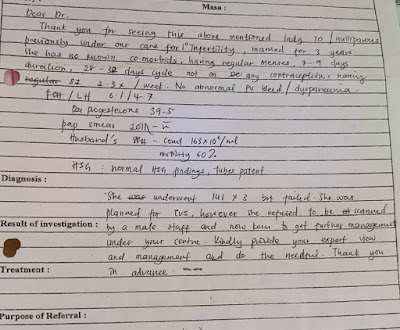 Masa :
Dear Dr.
Thank you for seeing this above mentioned lady 30 / nulliparous
previously under our care for 1° Infertility, married for 3 years.
She has no known co-morbids, having regular menses, 7-9 days
duration, 28-32 days cycle not on any contraception, having
regular SI 2-3x / week. No abnormal PV bleed / dyspareunia.
FSH / LH 6.1 / 4.7
progesterone 39.5
pap smear 2017
Husband's conc 163x10⁶/ml
motility 60%
HSG : normal HSG findings, tubes patent
Diagnosis :
She was underwent IUI x 3 but failed. She was
planned for TVS, however she refused to be scanned
Result of investigation : by a male staff and now keen to get further management
under your centre. Kindly provide your expert view
and management and do the needful. Thank you
Treatment : in advance.
Purpose of Referral :